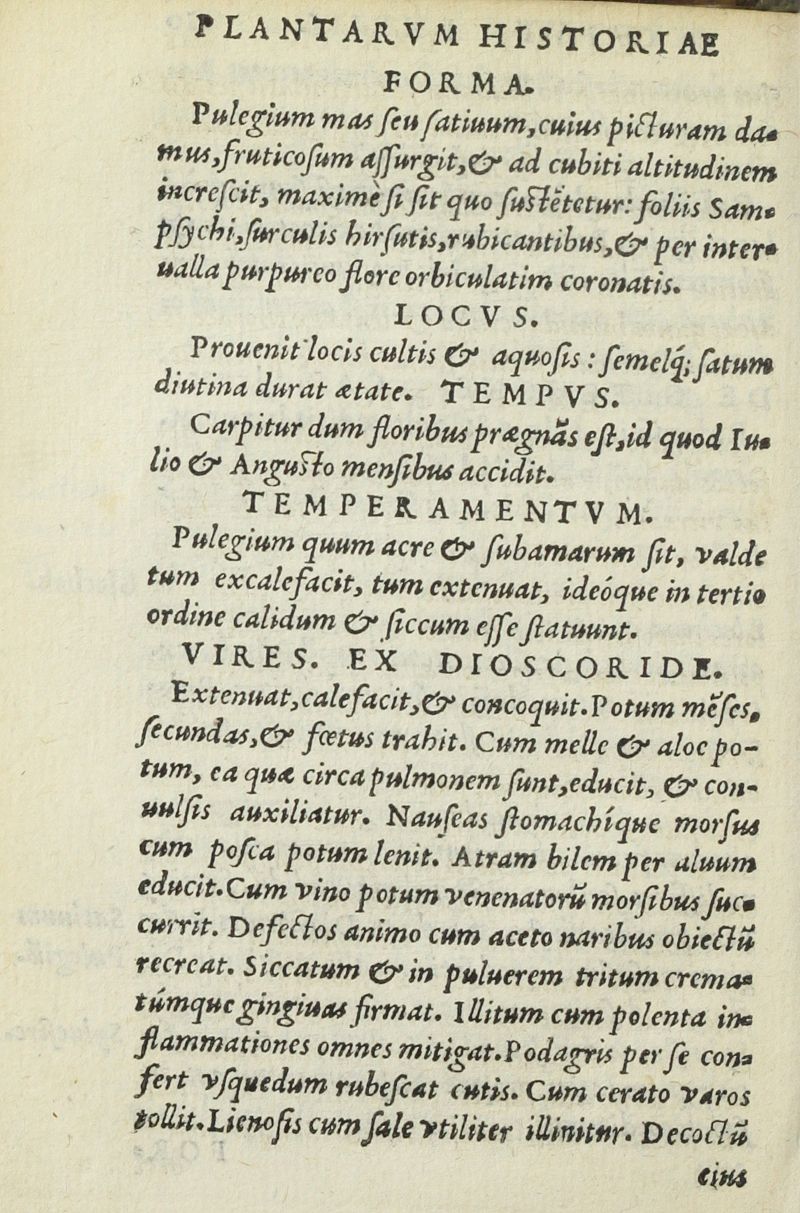 PLANTARVM HISTORIAE
FORMA.
Pulegium mas ſeu ſatiuum, cuius picturam da-
mus, fruticoſum aſſurgit, & ad cubiti altitudinem
increſcit, maximè ſi ſit quo ſuſtētetur: foliis Sam-
pſychi, ſurculis hirſutis, rubicantibus, & per inter-
ualla purpureo flore orbiculatim coronatis.
LOCVS.
Prouenit locis cultis & aquoſis : ſemelq́; ſatum
diutina durat ætate. TEMPVS.
Carpitur dum floribus prægnās eſt, id quod Iu-
lio & Anguſto menſibus accidit.
TEMPERAMENTVM.
Pulegium quum acre & ſubamarum ſit, valde
tum excalefacit, tum extenuat, ideóque in tertio
ordine calidum & ſiccum eſſe ſtatuunt.
VIRES. EX DIOSCORIDE.
Extenuat, calefacit, & concoquit. Potum mēſes,
ſecundas, & fœtus trahit. Cum melle & aloe po-
tum, ea quæ circa pulmonem ſunt, educit, & con-
uulſis auxiliatur. Nauſeas ſtomachíque morſus
cum poſca potum lenit. Atram bilem per aluum
educit. Cum vino potum venenatorū morſibus ſuc-
currit. Defectos animo cum aceto naribus obiectū
recreat. Siccatum & in puluerem tritum crema-
túmque gingiuas firmat. Illitum cum polenta in-
flammationes omnes mitigat. Podagris per ſe con-
fert vſquedum rubeſcat cutis. Cum cerato varos
tollit. Lienoſis cum ſale vtiliter illinitur. Decoctū
eius